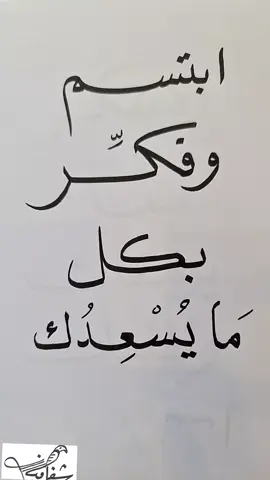 ابتسم
وفكِّر
بكل
مَا يُسْعِدُك